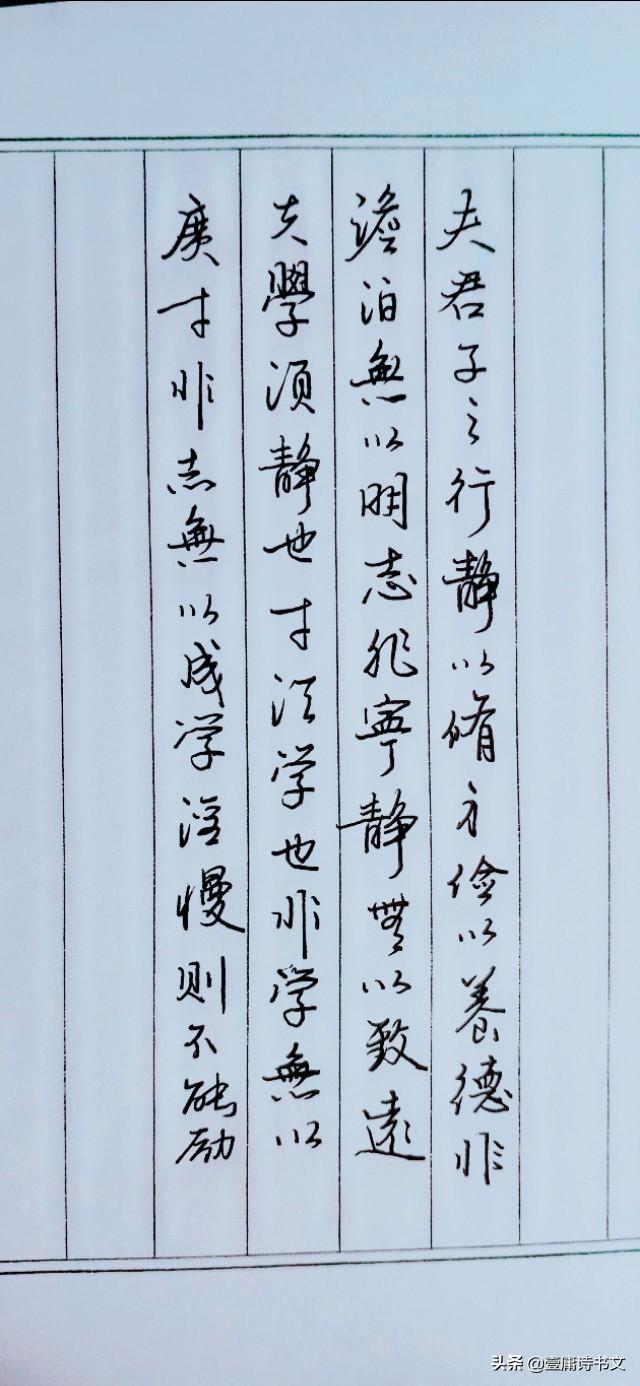 夫君子之行静以脩身俭以養德非
澹泊無以明志非寧静無以致遠
夫學須静也才须学也非学無以
廣才非志無以成学淫慢则不能励
头条 @壹庸诗书文